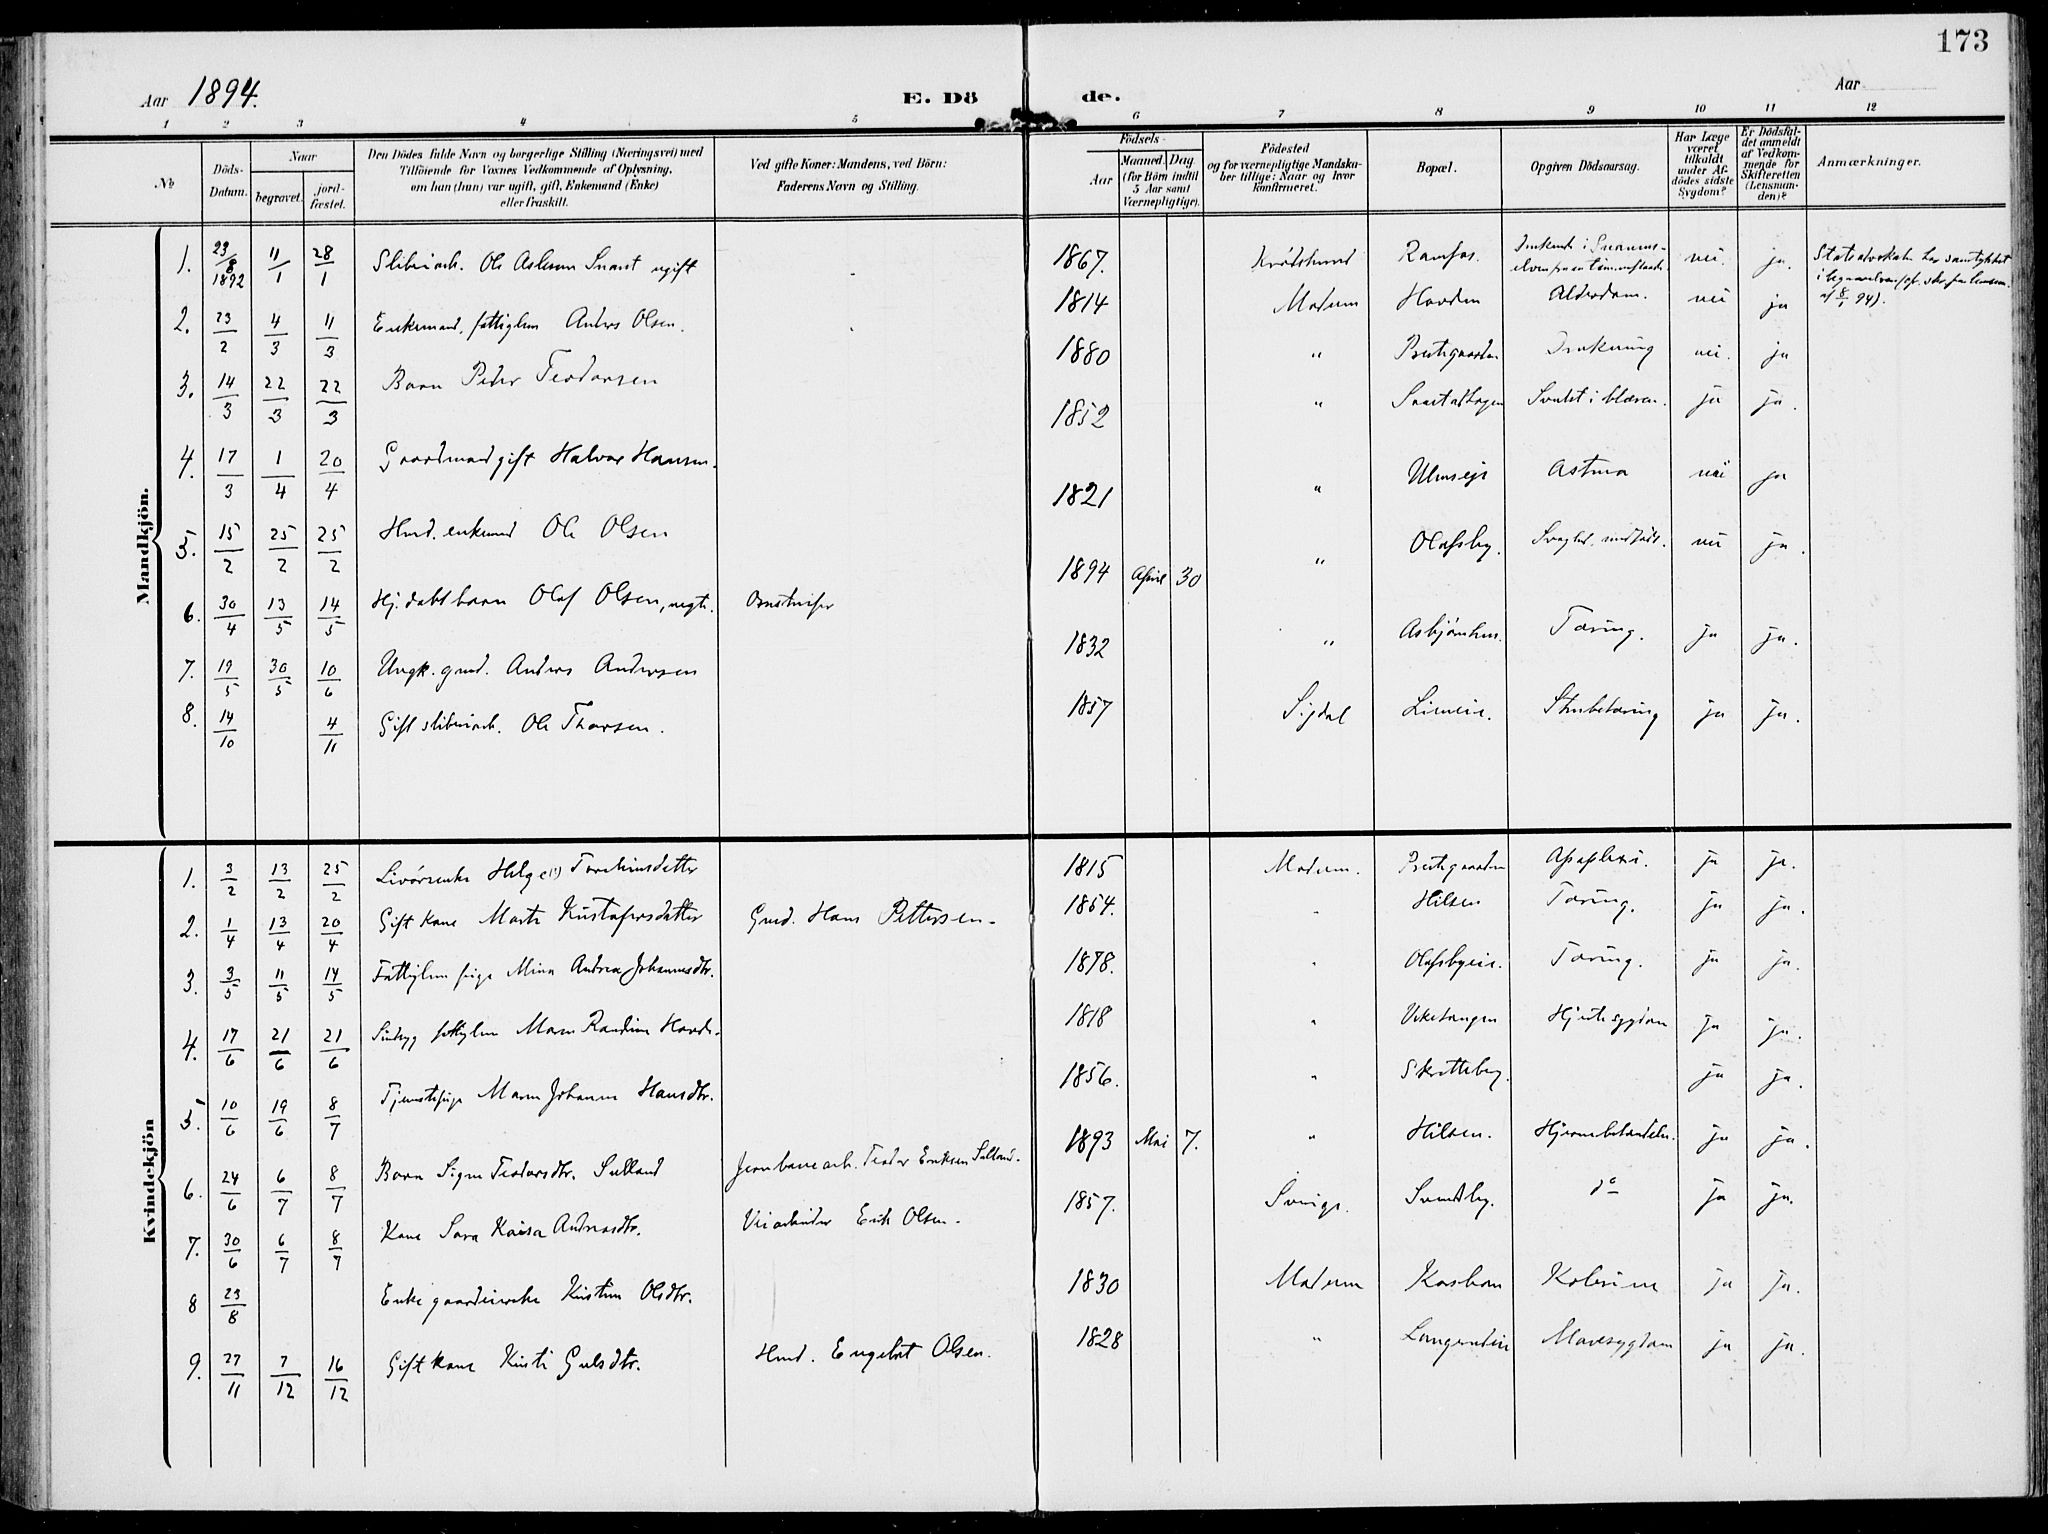 173
Aar 1894.
E. Dö de.
Aar
1 2 3 4 5 6 7 8 9 10 11 12
No
Döds-
Datum.
Naar
begravet.
jord-
fæstet.
Den Dödes fulde Navn og borgerlige Stilling (Næringsvei) med
Tilföiende for Voxnes Vedkommende af Oplysning,
om han (hun) var ugift, gift, Enkemand (Enke)
eller fraskilt.
Ved gifte Koner: Mandens, ved Börn:
Faderens Navn og Stilling.
Födsels-
Aar
Maaned. Dag
(for Börn indtil
5 Aar samt
Værnepligtige).
Födested
og for værnepligtige Mandska-
ber tillige: Naar og hvor
konfirmeret.
Bopæl.
Opgiven Dödsaarsag.
Har Læge
været
tilkaldt
under Af-
dödes sidste
Sygdom?
Er Dödsfal-
det anmeldt
af Vedkom-
mende for
Skifteretten
(Lensman-
den)?
Anmærkninger.
Mandkjön.
1. 23/8 1892 11/1 28/1 Sliberiarb. Ole Aslesen Snart ugift 1867. Krödsherred Ramfos. nei. ja. Statsadvokaten har samtykket
2. 23/2 4/3 11/3 Enkemand, fattiglem Anders Olsen. 1814 Modum Hovden Alderdom. nei ja
3. 14/3 22/3 22/3 Barn Peder Teodorsen 1880 " Prestegaarden Drukning nei. ja
4. 17/3 1/4 20/4 Gaardmand gift Halvor Hansen. 1852 " ja ja.
5. 15/2 25/2 25/2 Hmd. enkemd Ole Olsen 1821 " Astma nei ja
6. 30/4 13/5 14/5 Hj. døbt barn Olaf Olsen, uegte. 1894 April 30 " Olafsby. nei ja.
7. 19/5 30/5 10/6 Ungk. gmd. Anders Andersen 1832 " Asbjørnhus. Tæring. ja ja.
8. 14/10 4/11 Gift sliberiarb. Ole Thorsen. 1857 Sigdal Strubetæring ja ja.
Kvindekjön
1. 3/2 13/2 25/2 Livörenke Helge (!) Torstensdatter 1815 Modum. Prestegaarden Apoplexi. ja ja.
2. 1/4 13/4 20/4 Gift kone Marte Kristofersdatter Gmd. Hans Pettersen. 1854. " Hilsen Tæring. ja ja.
3. 3/5 11/5 14/5 Fattiglem pige Mina Andrea Johannesdtr. 1878. " Olafsbyeie. Tæring. ja ja.
4. 17/6 21/6 21/6 Sindsyg fattiglem Maren Randine 1818 " Viketangen Hjertesygdom ja ja.
5. 10/6 19/6 8/7 Tjenestepige Maren Johanne Hansdtr. 1856. " Skretteberg. ja ja.
6. 24/6 6/7 8/7 Barn Signe Teodorsdtr. Sælland Jernbanearb. Teodor Eriksen Sælland. 1893 Mai 7. " Hilsen. Hjernebetændelse. ja ja.
7. 30/6 6/7 8/7 Kone Sara Kaisa Andreasdtr. Veiarbeider Erik Olsen. 1857. Sverige. Svendsby. do ja ja.
8 23/8 Enke gaardeierske Kristine Olsdtr. 1830 Modum Kolerine ja ja.
9. 27/11 7/12 16/12 Gift kone Kirsti Gulsdtr. Hmd. Engebret Olsen. 1828 " Mavesygdom ja ja.